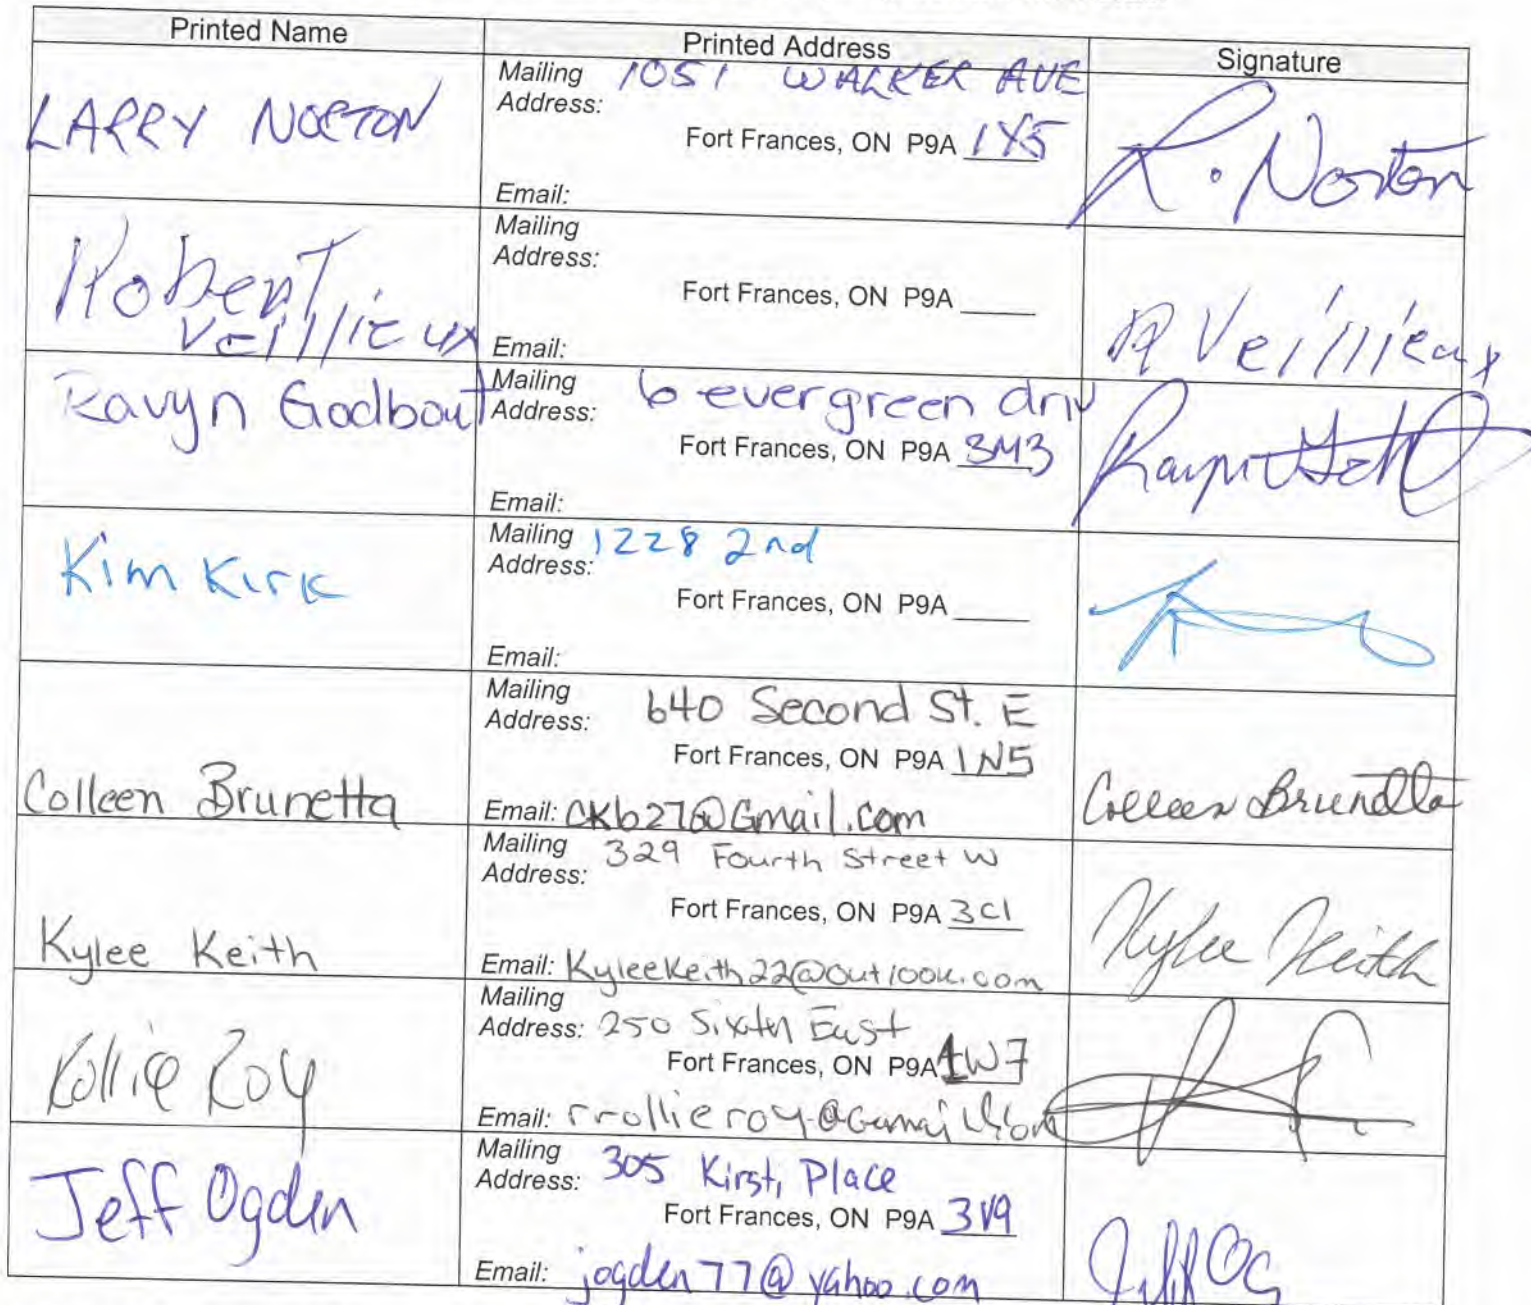 Printed Name Printed Address Signature
LARRY NORTON
Mailing Address: 1051 WALKER AVE
Fort Frances, ON P9A 1Y5
Email:
R. Norton
Robert Veillieux
Mailing Address:
Fort Frances, ON P9A ____
Email:
R Veillieux
Ravyn Godbout
Mailing Address: 6 evergreen driv
Fort Frances, ON P9A 3M3
Email:
Kim Kirk
Mailing Address: 1228 2nd
Fort Frances, ON P9A ____
Email:
Colleen Brunetta
Mailing Address: 640 Second St. E
Fort Frances, ON P9A 1N5
Email: CKb27@Gmail.com
Colleen Brunetta
Kylee Keith
Mailing Address: 329 Fourth Street W
Fort Frances, ON P9A 3C1
Email: KyleeKeith22@outlook.com
Kylee Keith
Rollie Roy
Mailing Address: 250 Sixth East
Fort Frances, ON P9A 1W7
Email: rrollieroy@Gmail.com
Jeff Ogden
Mailing Address: 305 Kirsti Place
Fort Frances, ON P9A 3V9
Email: jogden77@yahoo.com